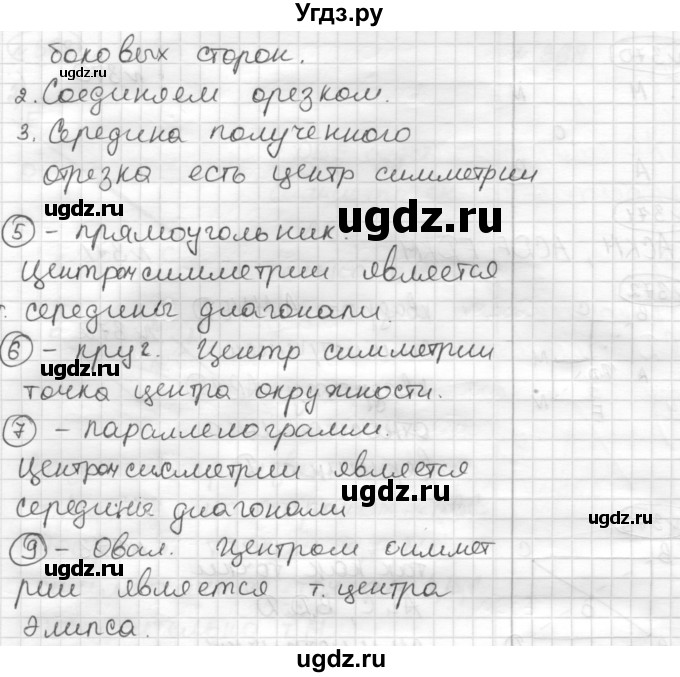 Угдз.ру
боковых сторон.
ugdz.ru
2. Соединяем орезком.
3. Середина полученного
отрезка есть центр симметрии
ugdz.ru ugdz.ru
5 - прямоугольник.
Центром симметрии является
т. середины диагонали.
6 - круг. Центр симметрии
ugdz.ru
точка центра окружности.
7 - параллелограмм.
Центром симметрии является
ugdz.ru
середины диагонали
ugdz.ru
9 - Овал. Центром симмет
ugdz.ru
рии является т. центра
Элипса.
ugdz.ru